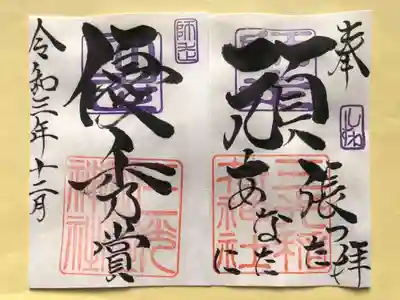 奉拝
頑張った
あなたに
優秀賞
令和三年十二月
師走